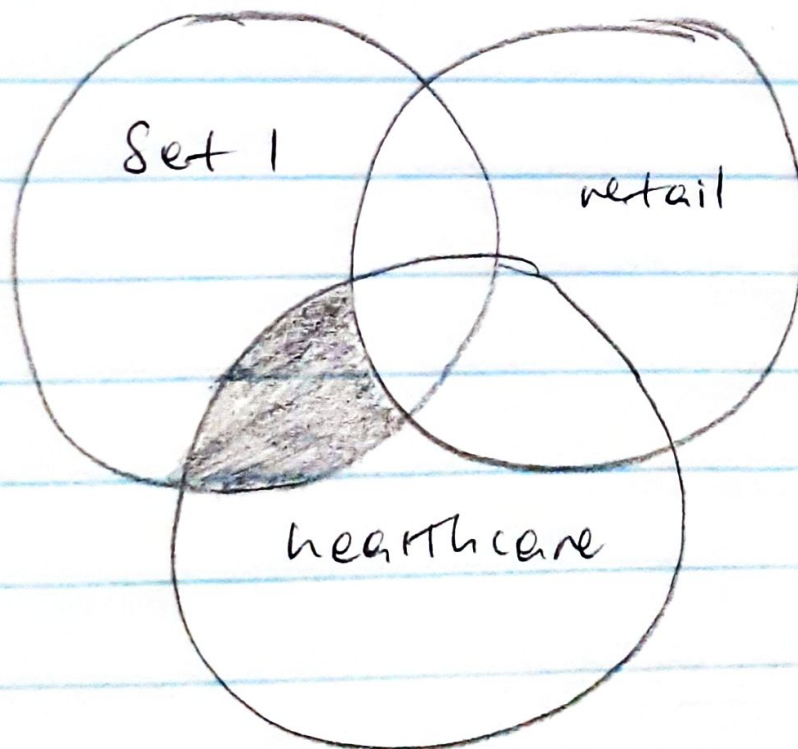 Set 1
retail
healthcare